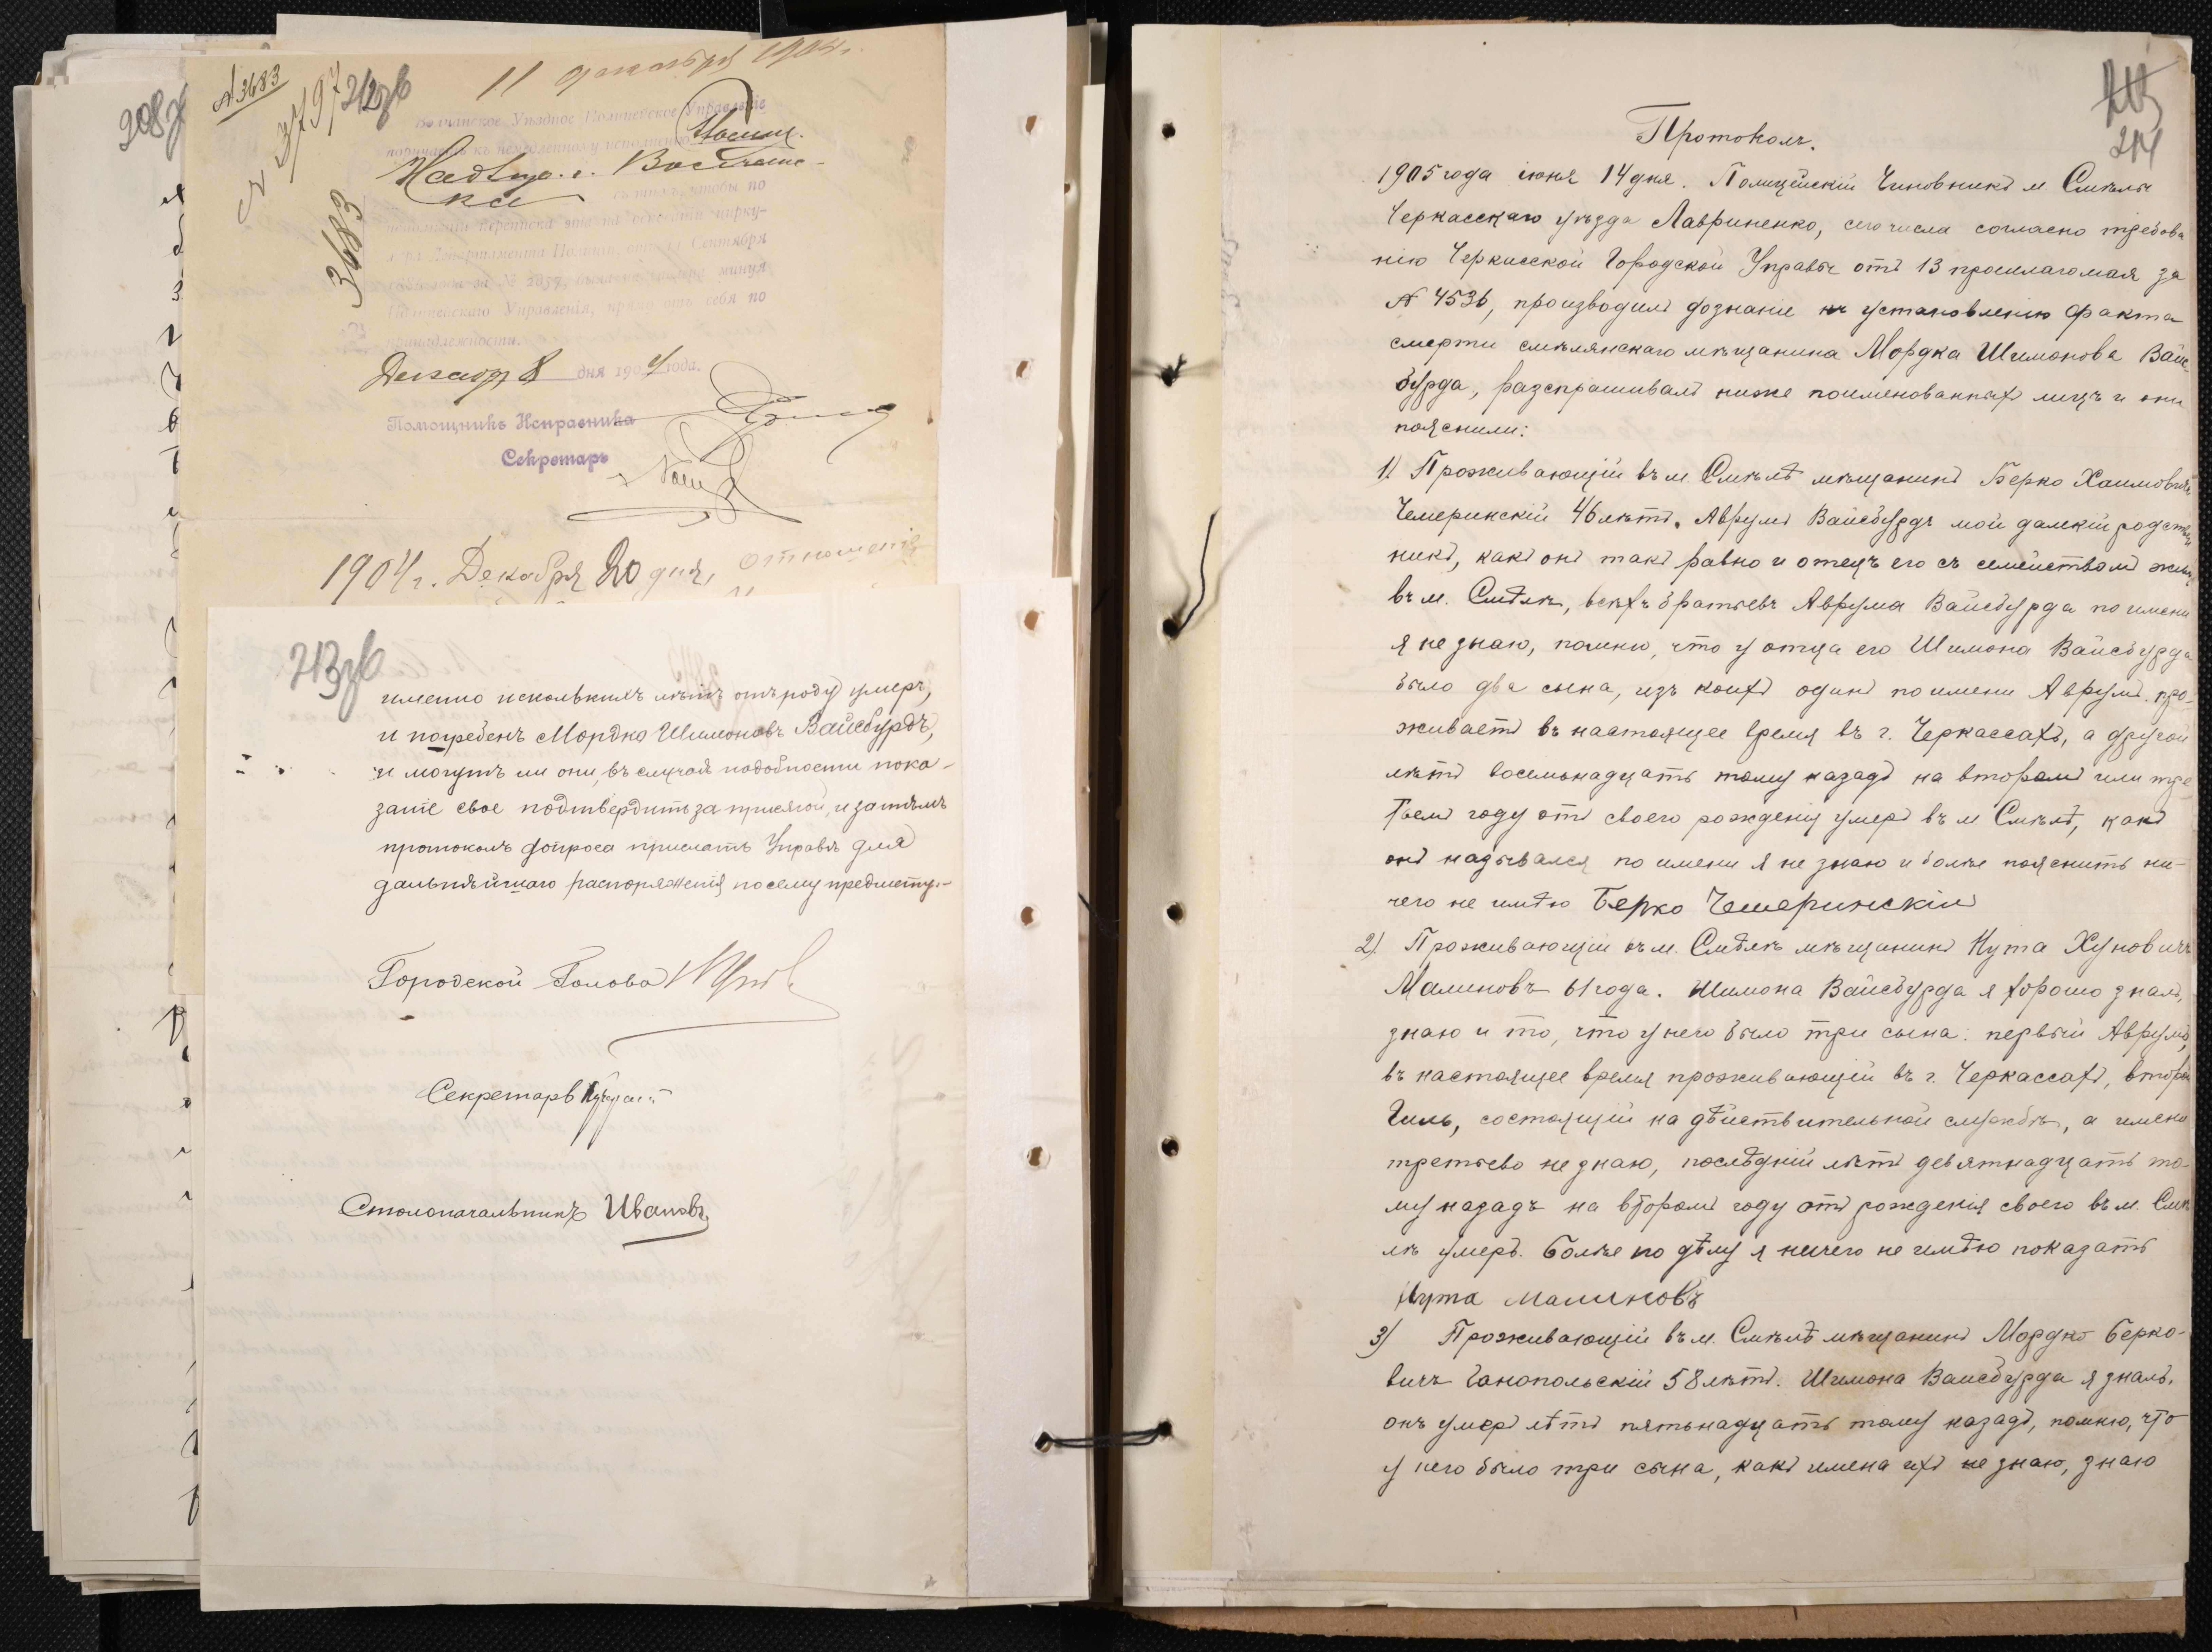 208
№ 3683
11 декабря 1904 г.
212 об
3683
Волчанское Уѣздное Полицейское Управленіе
Сентября
Полицейскаго Управленія, прямо отъ себя по
принадлежности.
8 дня 1904 года.
Помощникъ Исправника
Секретарь
1904 г. Декабря 20 дня, отношеніе
213 об
именно несколькихъ лѣтъ отъ роду умеръ,
и погребенъ Мордко Шимоновъ Вайсбурдъ,
и могутъ ли они, въ случаѣ надобности пока-
заніе свое подтвердить за присягой, и затѣмъ
протоколъ допроса прислать Управѣ для
дальнѣйшаго распоряженія по сему предмету.-
Городской Голова
Секретарь
Столоначальникъ Ивановъ
214
Протоколъ.
1905 года іюня 14 дня. Полицейскій Чиновникъ м Смѣлы
Черкасскаго уѣзда Лавриненко, сего числа согласно требова
нію Черкасской Городской Управы отъ 13 прошлаго мая за
№ 4536, производилъ дознаніе къ установленію факта
смерти смѣлянскаго мѣщанина Мордка Шимонова Вайс
бурда, разспрашивалъ ниже поименованныхъ лицъ и они
пояснили:
1) Проживающій въ м. Смѣлѣ мѣщанинъ Берко Хаимовичъ
Чемеринскій 46 лѣтъ. Аврумъ Вайсбурдъ мой далекій родствен
никъ, какъ онъ такъ равно и отецъ его съ семействомъ жили
въ м. Смѣлѣ, всѣхъ братьевъ Аврума Вайсбурда по имени
я не знаю, помню, что у отца его Шимона Вайсбурда
было два сына, изъ коихъ одинъ по имени Аврумъ про-
живаетъ въ настоящее время въ г. Черкассахъ, а другой
лѣтъ восемьнадцать тому назадъ на второмъ или тре
тьемъ году отъ своего рожденія умеръ въ м Смѣлѣ, какъ
онъ назывался по имени я не знаю и болѣе пояснить ни-
чего не имѣю Берко Чемеринскій
2) Проживающій въ м. Смѣлѣ мѣщанинъ Нута Хуновичъ
Малиновъ 61 года. Шимона Вайсбурда я хорошо зналъ,
знаю и то, что у него было три сына: первый Аврумъ,
въ настоящее время проживающій въ г. Черкассахъ, второй
Гиль, состоящій на дѣйствительной службѣ, а имени
третьево не знаю, послѣдній лѣтъ девятнадцать то-
му назадъ на второмъ году отъ рожденія своего въ м. Смѣ
лѣ умеръ. Болѣе по дѣлу я ничего не имѣю показать
Нута Малиновъ
3) Проживающій въ м. Смѣлѣ мѣщанинъ Мордко Берко-
вичъ Ганопольскій 58 лѣтъ. Шимона Вайсбурда я зналъ,
онъ умеръ лѣтъ пятьнадцать тому назадъ, помню, что
у него было три сына, какъ имена ихъ не знаю, знаю